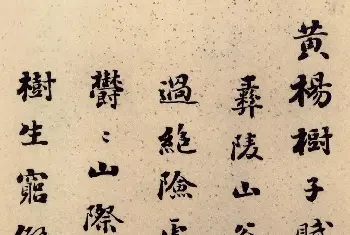 黄楊樹子賦
彝陵山
過絶險
鬱〻山際
樹生窮